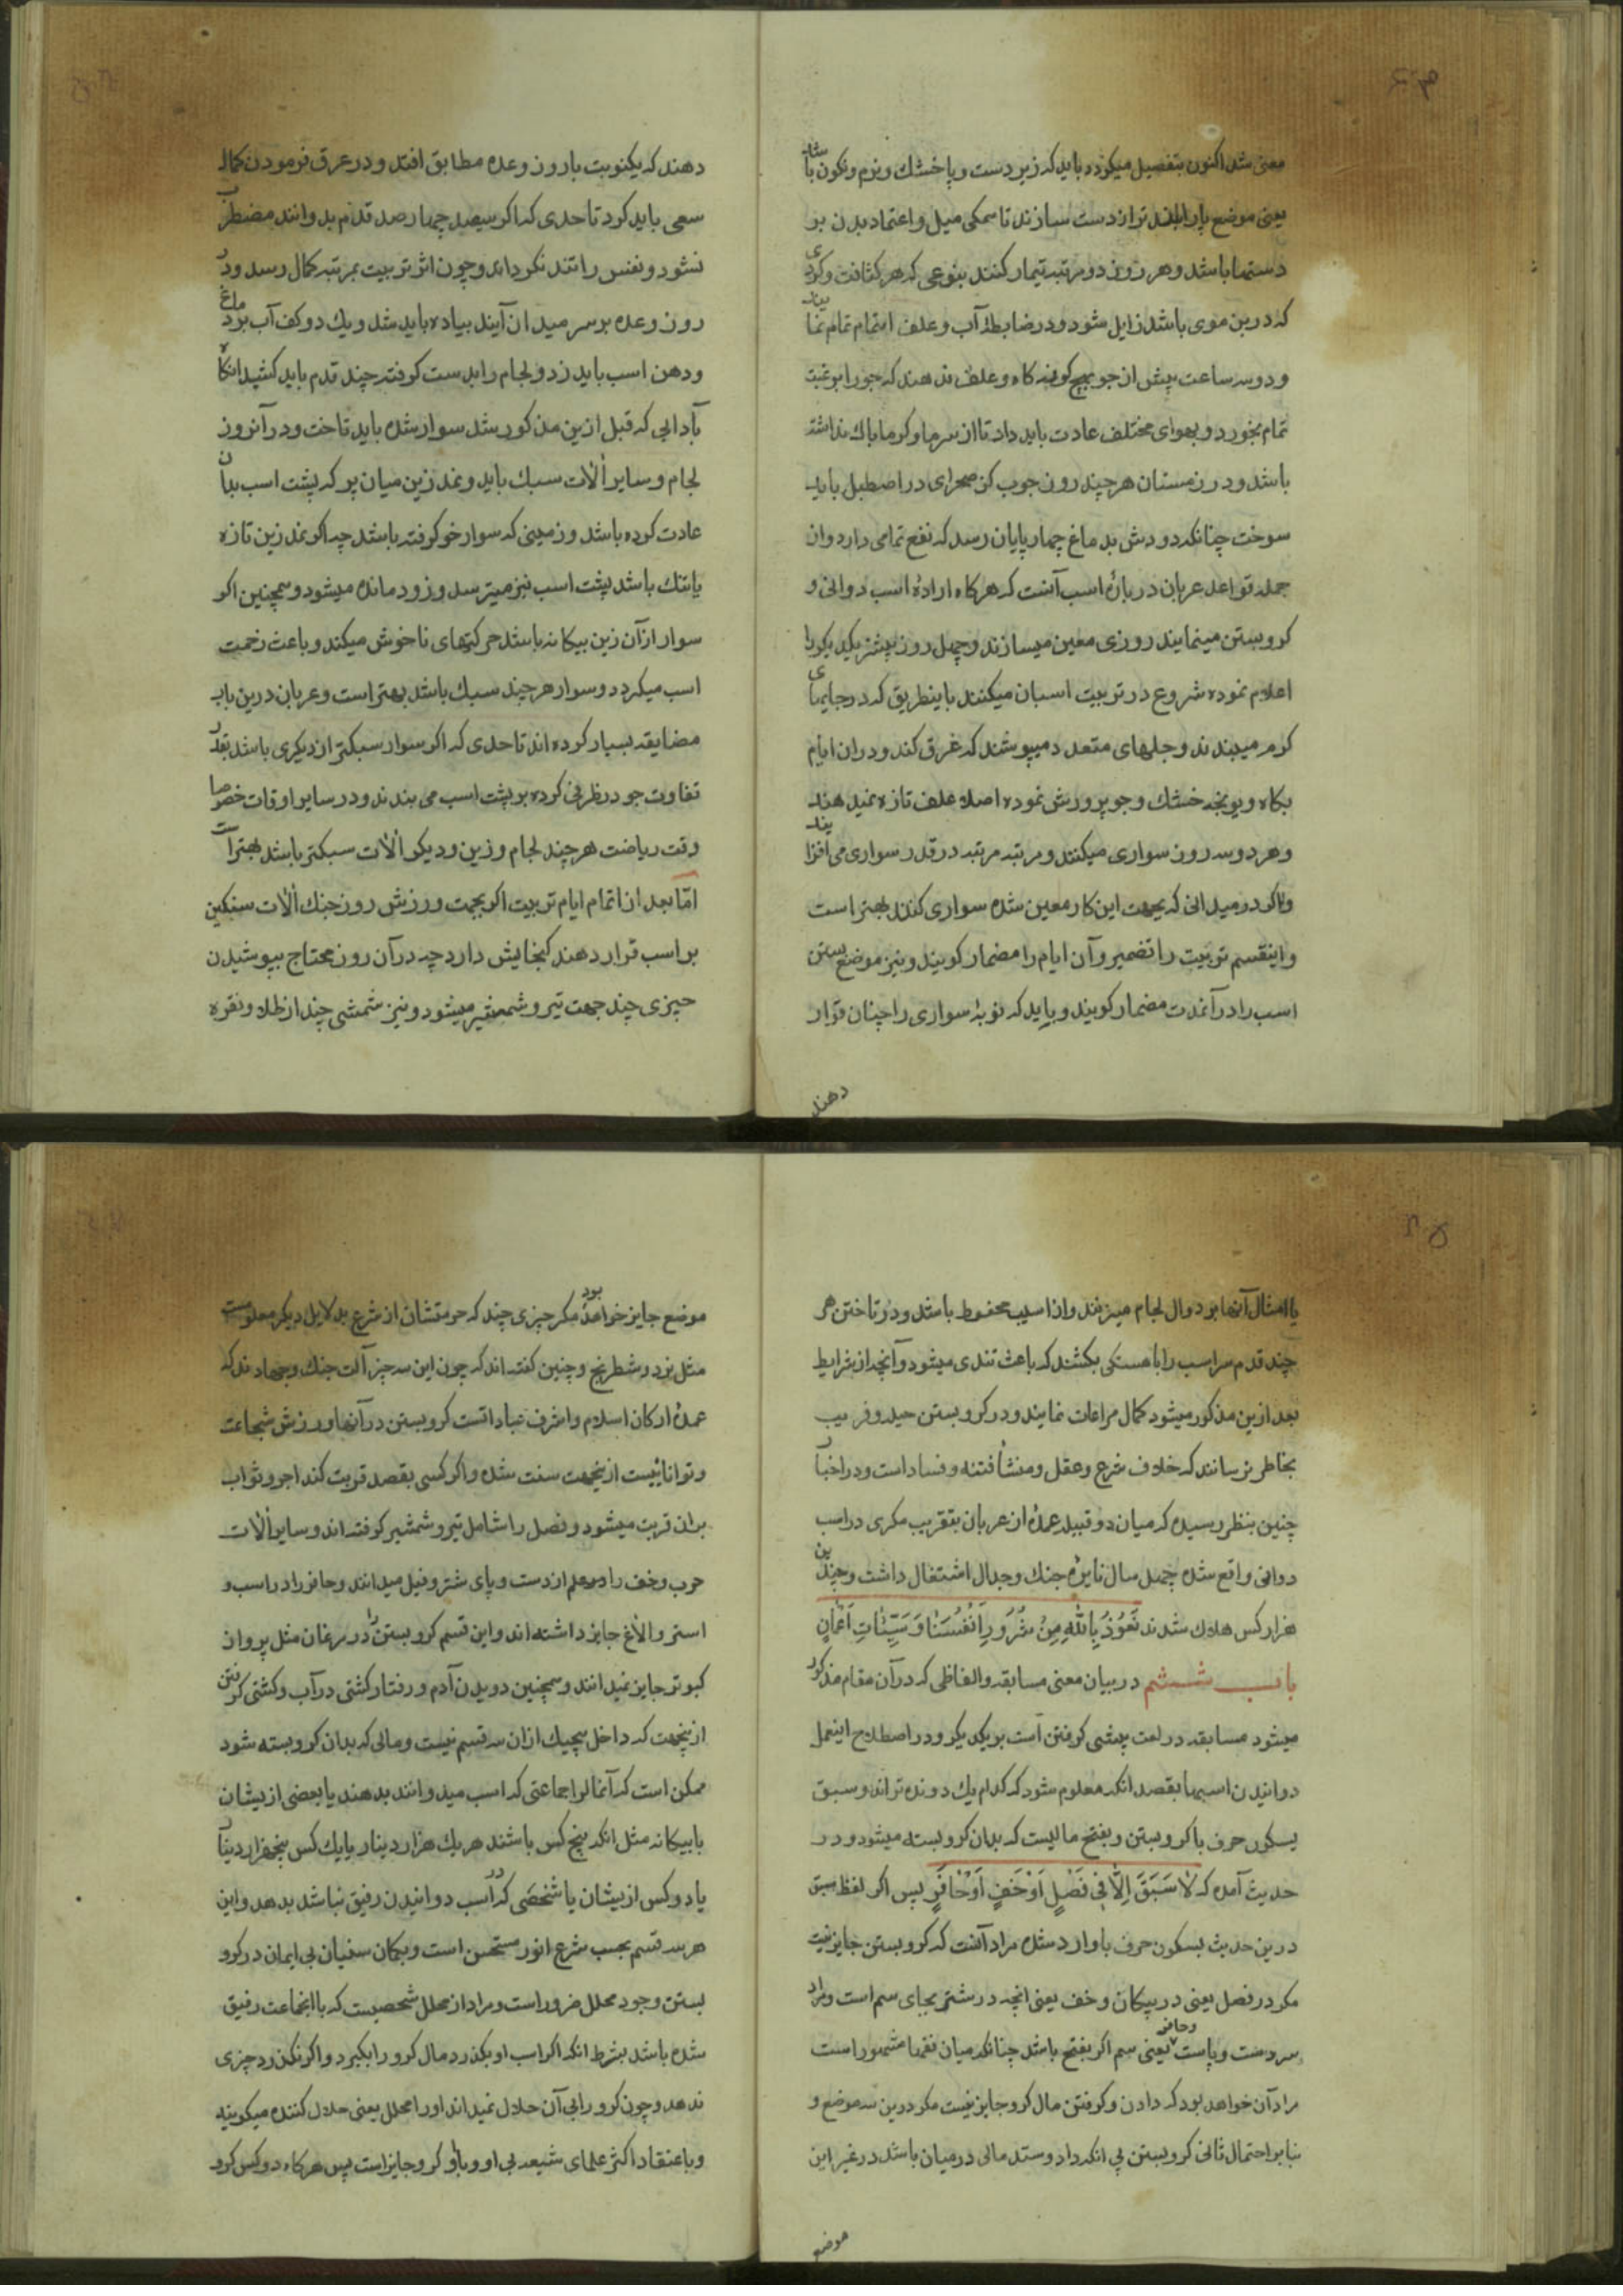 معنی شد اکنون بتفصیل میکردد باید که زیر دست و پا خشك و نرم و نکون باشد
یعنی موضع پا را بلند تر از دست سازند تا سمکی میل و اعتماد بدن بر
دستها باشد و هر روز دو مرتبه تیمار کنند بنوعی که هر کثافت و کردی
که در بن موی باشد زایل شود و در ضابطۀ آب و علف اهتمام تمام نمایند
و دو سه ساعت پیش از جو هیچ کونه کاه و علف ندهند که جو را برغبت
تمام بخورد و بهوای مختلف عادت باید داد تا از سرما و کرما باك نداشته
باشد و در زمستان هر چند روز چوب کز صحرای در اصطبل باید
سوخت چنانکه دودش بدماغ چهارپایان رسد که نفع تمامی دارد و از
جمله قواعد عربان در بارۀ اسب آنست که هرکاه ارادۀ اسب دوانی و
کرو بستن مینمایند روزی معین میسازند و چهل روز پیشتر یکدیکر را
اعلام نموده شروع در تربیت اسبان میکنند باینطریق که در جایهای
کرم میبندند و جلهای متعدد میپوشند که غرق کند و دران ایام
بکاه و یونجه خشك و جو پرورش نموده اصلا علف تازه نمیدهند
و هر دو سه روز سواری میکنند و مرتبه مرتبه در قدر سواری می افزایند
و اکر در میدانی که بجهت این کار معین شده سواری کنند بهتر است
و اینقسم تربیت را تضمیر و آن ایام را مضمار کویند و نیز موضع بستن
اسب را در آنمدت مضمار کویند و باید که نوبۀ سواری را چنان قرار
دهند
دهند که یکنوبت با روز وعده مطابق افتد و در عرق فرمودن کمال
سعی باید کرد تا حدی که اکر سیصد چهارصد قدم بدوانند مضطرب
نشود و نفس را تند نکرداند و چون اثر تربیت بمرتبه کمال رسد و در
روز وعده بر سر میدان آیند پیاده باید شد و یك دو کف آب بر دماغ
و دهن اسب باید زد و لجام را بدست کرفته چند قدم باید کشید انکاه
بآدابی که قبل ازین مذکور شد سوار شده باید تاخت و در آنروز
لجام و سایر آلات سبك باید و نمد زین میان پر که پشت اسب بدان
عادت کرده باشد و زمینی که سوار خو کرفته باشد چه اکر نمد زین تازه
یا تنك باشد پشت اسب نیز میترسد و زود مانده میشود و همچنین اکر
سوار از آن زین بیکانه باشد حرکتهای ناخوش میکند و باعث زحمت
اسب میکردد و سوار هر چند سبك باشد بهتر است و عربان درین باب
مضایقه بسیار کرده اند تا حدی که اکر سوار سبکتر از دیکری باشد بقدر
تفاوت جو در ظرفی کرده بر پشت اسب می بندند و در سایر اوقات خصوصا
وقت ریاضت هر چند لجام و زین و دیکر آلات سبکتر باشد بهتر است
امّا بعد از اتمام ایام تربیت اکر بجهت ورزش روز جنك آلات سنکین
بر اسب قرار دهند کنجایش دارد چه در آن روز محتاج بپوشیدن
چیزی چند جهت تیر و شمشیر میشود و نیز شمشی چند از طلا و نقره
یا امثال آنها بر دوال لجام میزنند و از آسیب محفوظ باشد و در تاختن هر
چند قدم سر اسب را باهستکی بکشند که باعث تندی میشود و آنچه از شرایط
بعد ازین مذکور میشود کمال مراعات نمایند و در کرو بستن حیله و فریب
بخاطر نرسانند که خلاف شرع و عقل و منشأ فتنه و فساد است و در اخبار
چنین بنظر رسیده که میان دو قبیلۀ عمدۀ از عربان بتقریب مکری در اسب
دوانی واقع شده چهل سال نایرۀ جنك و جدال اشتغال داشت و چندین
هزار کس هلاك شدند نَعُوذُ بِاللّٰهِ مِنْ شُرُورِ اَنْفُسِنَا وَ سَيِّئَاتِ اَعْمَالِنَا
باب ششم در بیان معنی مسابقه و الفاظی که در آن مقام مذکور
میشود مسابقه در لغت پیشی کرفتن است بر یکدیکر و در اصطلاح اینعمل
دوانیدن اسبها بقصد انکه معلوم شود که کدام یك دونده تراند و سبق
بسکون حرف با کرو بستن و بفتح مالیست که بدان کرو بسته میشود و در
حدیث آمده که لَا سَبَقَ اِلَّا فِي نَصْلٍ اَوْ خُفٍ اَوْ حَافِرٍ پس اکر لفظ سبق
درین حدیث بسکون حرف با وارد شده مراد آنست که کرو بستن جایز نیست
مکر در نصل یعنی در پیکان و خف یعنی انچه در شتر بجای سم است و مراد
سر دست و پاست و حافر یعنی سم اکر بفتح باشد چنانکه میان فقها مشهور است
مراد آن خواهد بود که دادن و کرفتن مال کرو جایز نیست مکر درین سه موضع و
بنابر احتمال ثانی کرو بستن بی انکه داد و ستد مالی در میان باشد در غیر این
موضع
موضع جایز خواهد بود مکر چیزی چند که حرمتشان از شرع بدلایل دیکر معلومست
مثل نرد و شطرنج و چنین کفته اند که چون این سه چیز آلت جنك و جهادند که
عمدۀ ارکان اسلام و اشرف عباداتست کرو بستن در آنها ورزش شجاعت
و تواناییست ازینجهت سنت شده و اکر کسی بقصد قربت کند اجر و ثواب
بران قربت میشود و نصل را شامل تیر و شمشیر کرفته اند و سایر آلات
حرب و خف را در علم از دست و پای شتر و فیل میدانند و حافر را در اسب و
استر و الاغ جایز داشته اند و این قسم کرو بستن را در مرغان مثل پرواز
کبوتر جایز نمیدانند و همچنین دویدن آدم و رفتار کشتی در آب و کشتی کرفتن
ازینجهت که داخل هیچیك ازان سه قسم نیست و مالی که بدان کرو بسته شود
ممکن است که آنمال را جماعتی که اسب میدوانند بدهند یا بعضی از یشان
یا بیکانه مثل انکه پنج کس باشند هر یك هزار دینار یا یك کس پنجهزار دینار
یا دو کس از یشان یا شخصی که در اسب دوانیدن رفیق نباشد بدهد و این
هر سه قسم بحسب شرع انور مستحسن است و بکمان سنیان بی ایمان در کرو
بستن وجود محلل ضرور است و مراد از محلل شخصیست که با انجماعت رفیق
شده باشد بشرط انکه اکر اسب او بکذرد مال کرو را بکیرد و اکر نکذرد چیزی
ندهد و چون کرو را بی آن حلال نمیداند او را محلل یعنی حلال کننده میکویند
و باعتقاد اکثر علمای شیعه بی او و باو کرو جایز است پس هرکاه دو کس کرو